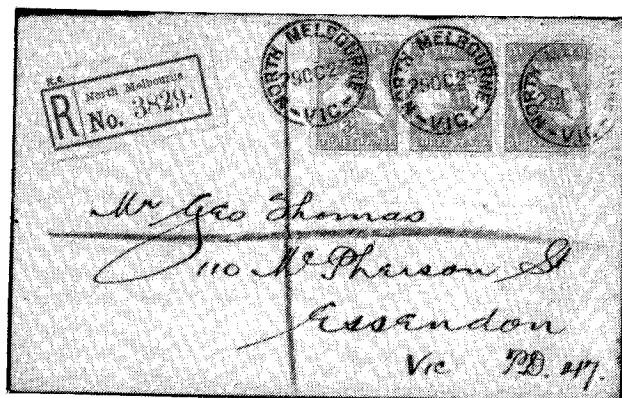 R.6.
R North Melbourne
No. 3829.
NORTH MELBOURNE
29OC23
VIC.
NORTH MELBOURNE
29OC23
VIC.
NORTH
29
VIC.
Mr Geo Thomas
110 McPherson St
Essendon
Vic P.D.